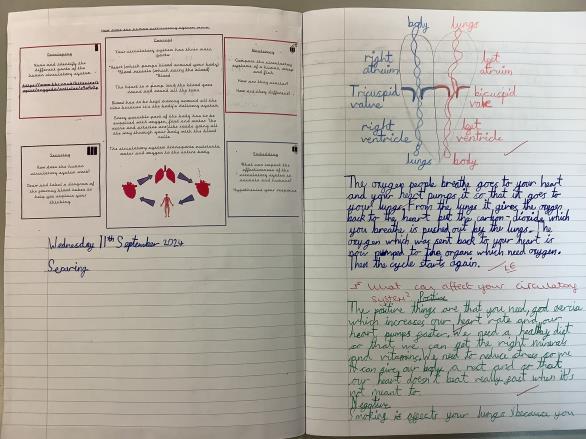 How does the human circulatory system work?
Developing
Name and identify the different parts of the human circulatory system
Content
Your circulatory system has three main parts:
Heart (which pumps blood around your body)
Blood vessels (which carry the blood)
Blood
The heart is a pump that the blood goes round and round all the time
Blood has to be kept moving around all the time because it is the body's delivery system
Every possible part of the body has to be supplied with oxygen, food and water. The veins and arteries are like roads going all the way through your body with the blood cells.
The circulatory system transports nutrients, water and oxygen to the entire body
Mastering
Compare the circulatory systems of a human and fish
How are they similar?
How are they different?
Securing
How does the human circulatory system work?
Draw and label a diagram of the journey blood takes to help you explain your thinking
Embedding
What can impact the effectiveness of the circulatory system in animals and humans?
Hypothesise your response
Wednesday 11th September 2024
Securing
body
lungs
right atrium
left atrium
Tricuspid valve
bicuspid valve
right ventricle
left ventricle
lungs
body
The oxygen people breathe goes to your heart
and your heart pumps it so that it goes to
your lungs. From the lungs it gives the oxygen
back to the heart but the carbon-dioxide which
you breathe is pushed out by the lungs. The
oxygen which was sent back to your heart is
now pumped to the organs which need oxygen.
Then the cycle starts again.
What can affect your circulatory
system? Positive
The positive things are that you need,
which increases our heart rate and our
heart pumps faster. We need a healthy diet
so that we can get the right minerals
and vitamins. We need to reduce stress so we
can give our body a rest and so that
our heart doesn't beat really fast when it's
not meant to.
Negative
Smoking is effects your lungs because you